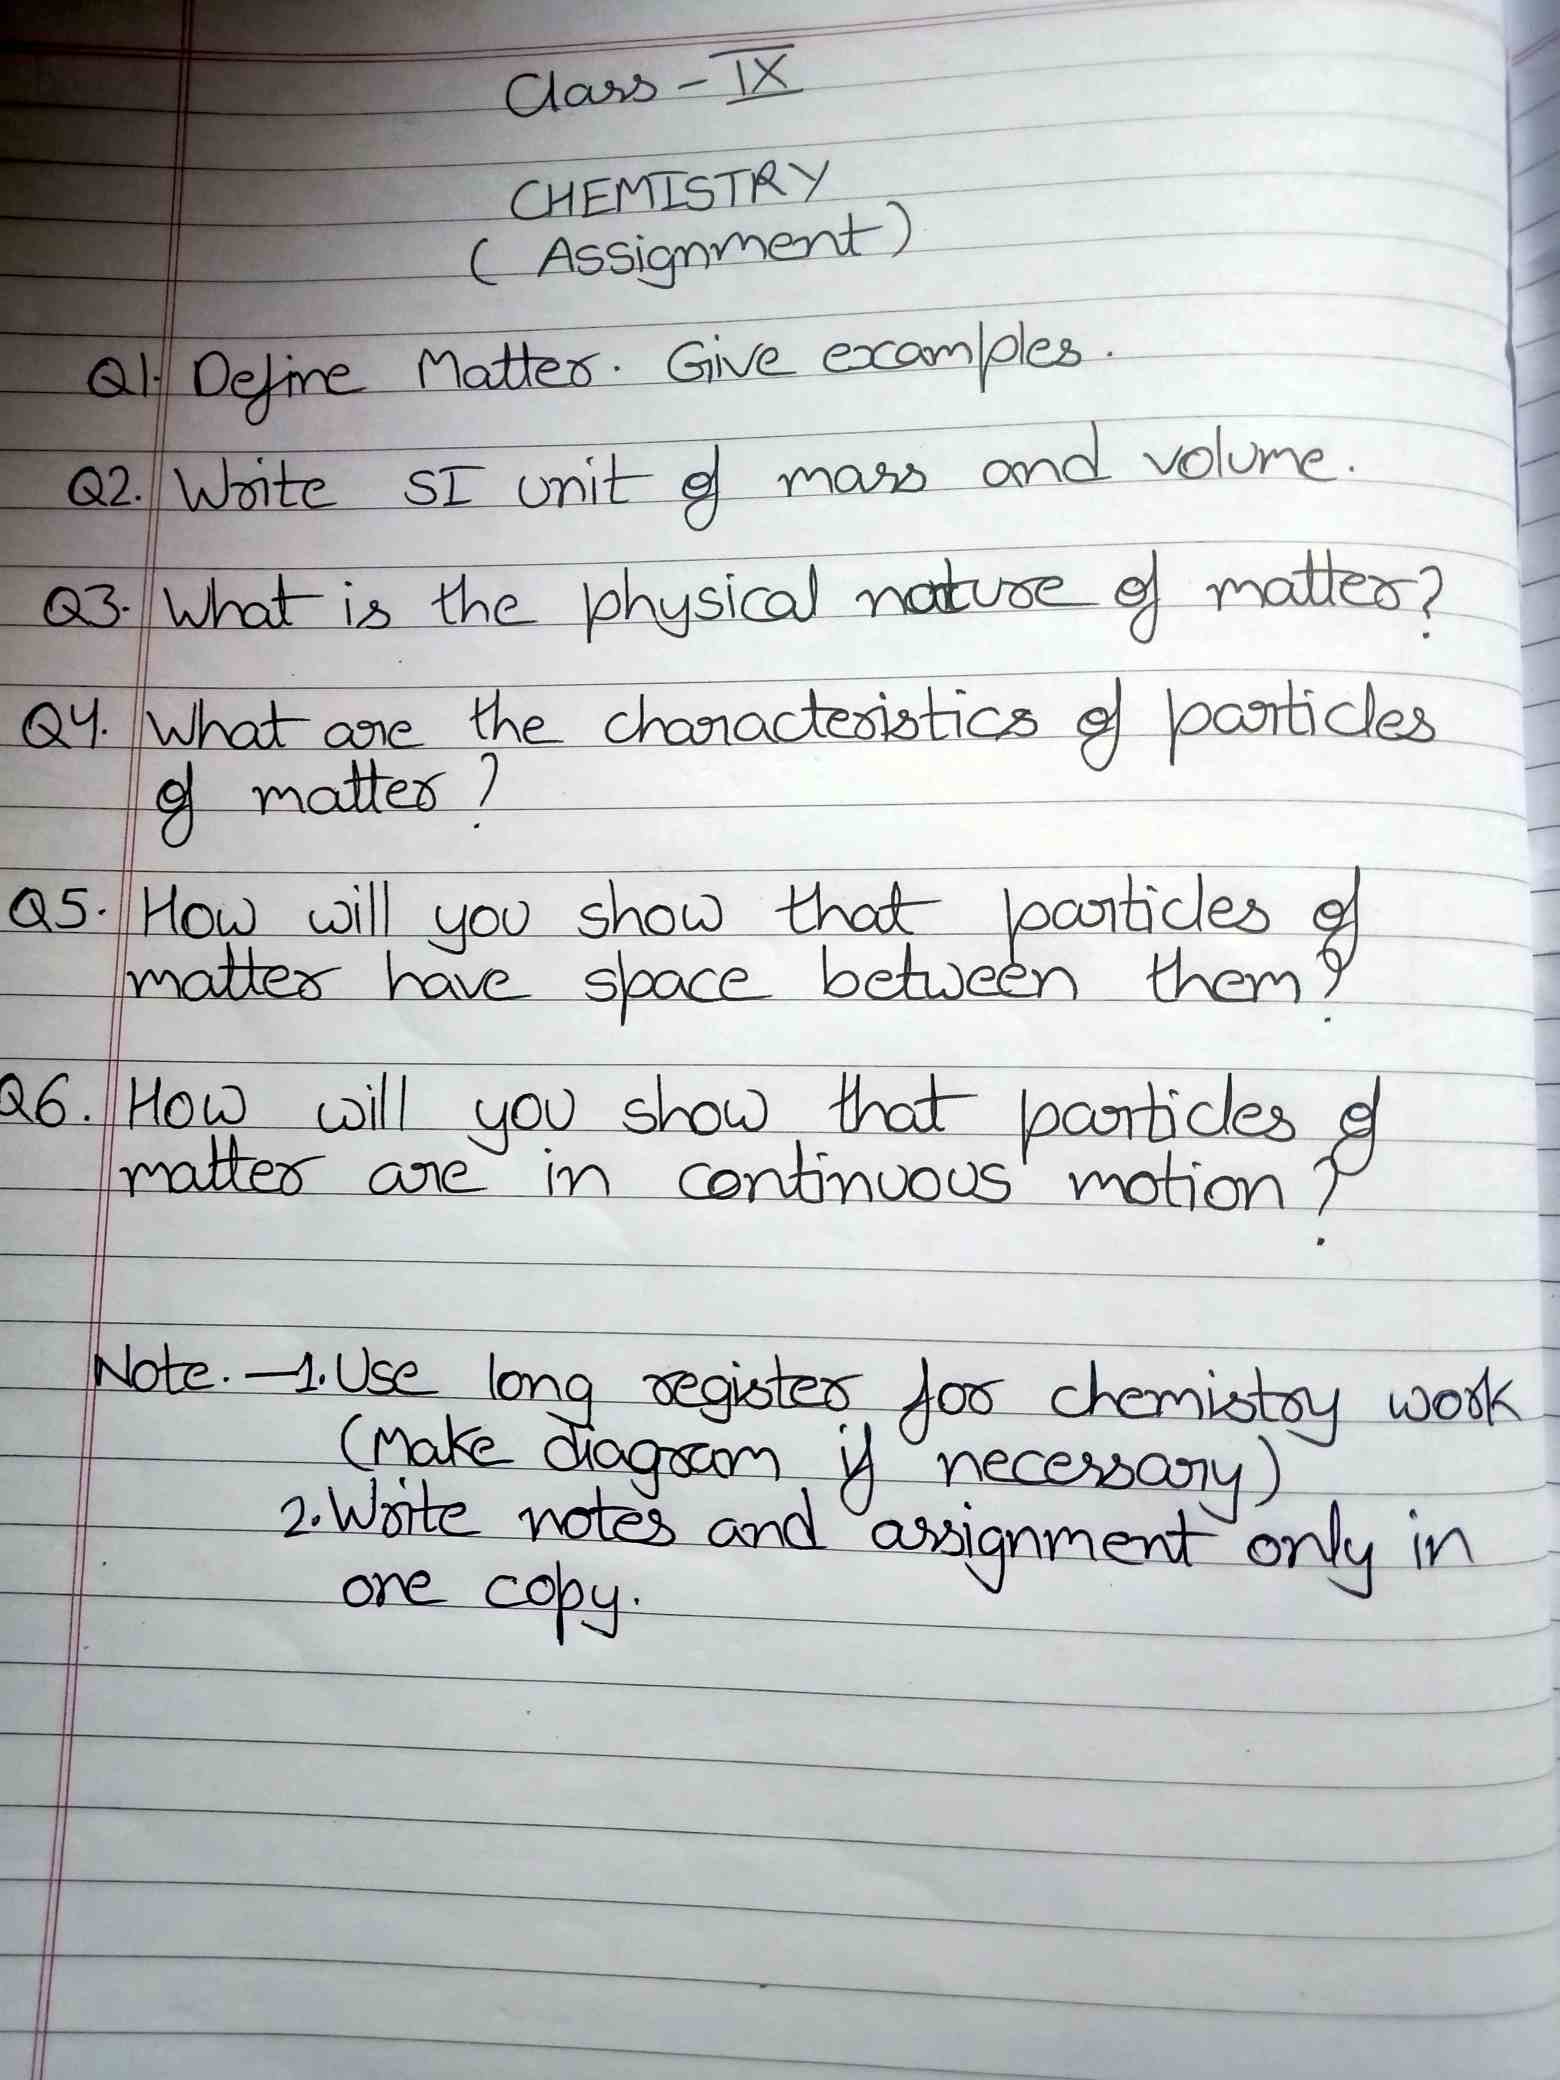 Class - IX
CHEMISTRY
( Assignment )
Q1. Define Matter. Give examples.
Q2. Write SI unit of mass and volume.
Q3. What is the physical nature of matter?
Q4. What are the characteristics of particles
of matter?
Q5. How will you show that particles of
matter have space between them?
Q6. How will you show that particles of
matter are in continuous motion?
Note. - 1. Use long register for chemistry work
(Make diagram if necessary)
2. Write notes and assignment only in
one copy.